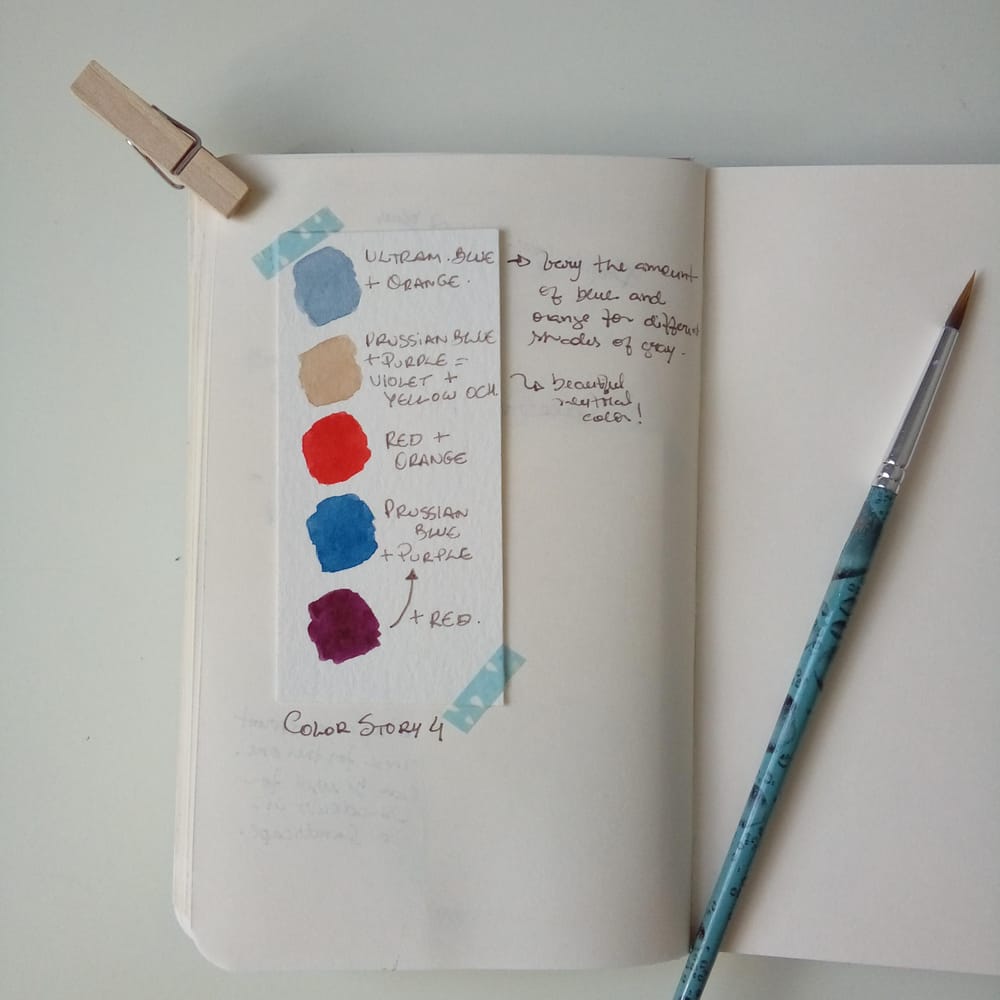 ULTRAM. BLUE
+ ORANGE.
→ Vary the amount
of blue and
orange for different
shades of gray.
PRUSSIAN BLUE
+ PURPLE =
VIOLET +
YELLOW OCH.
↳ beautiful
neutral
color!
RED +
ORANGE
PRUSSIAN
BLUE
+ PURPLE
+ RED.
COLOR STORY 4